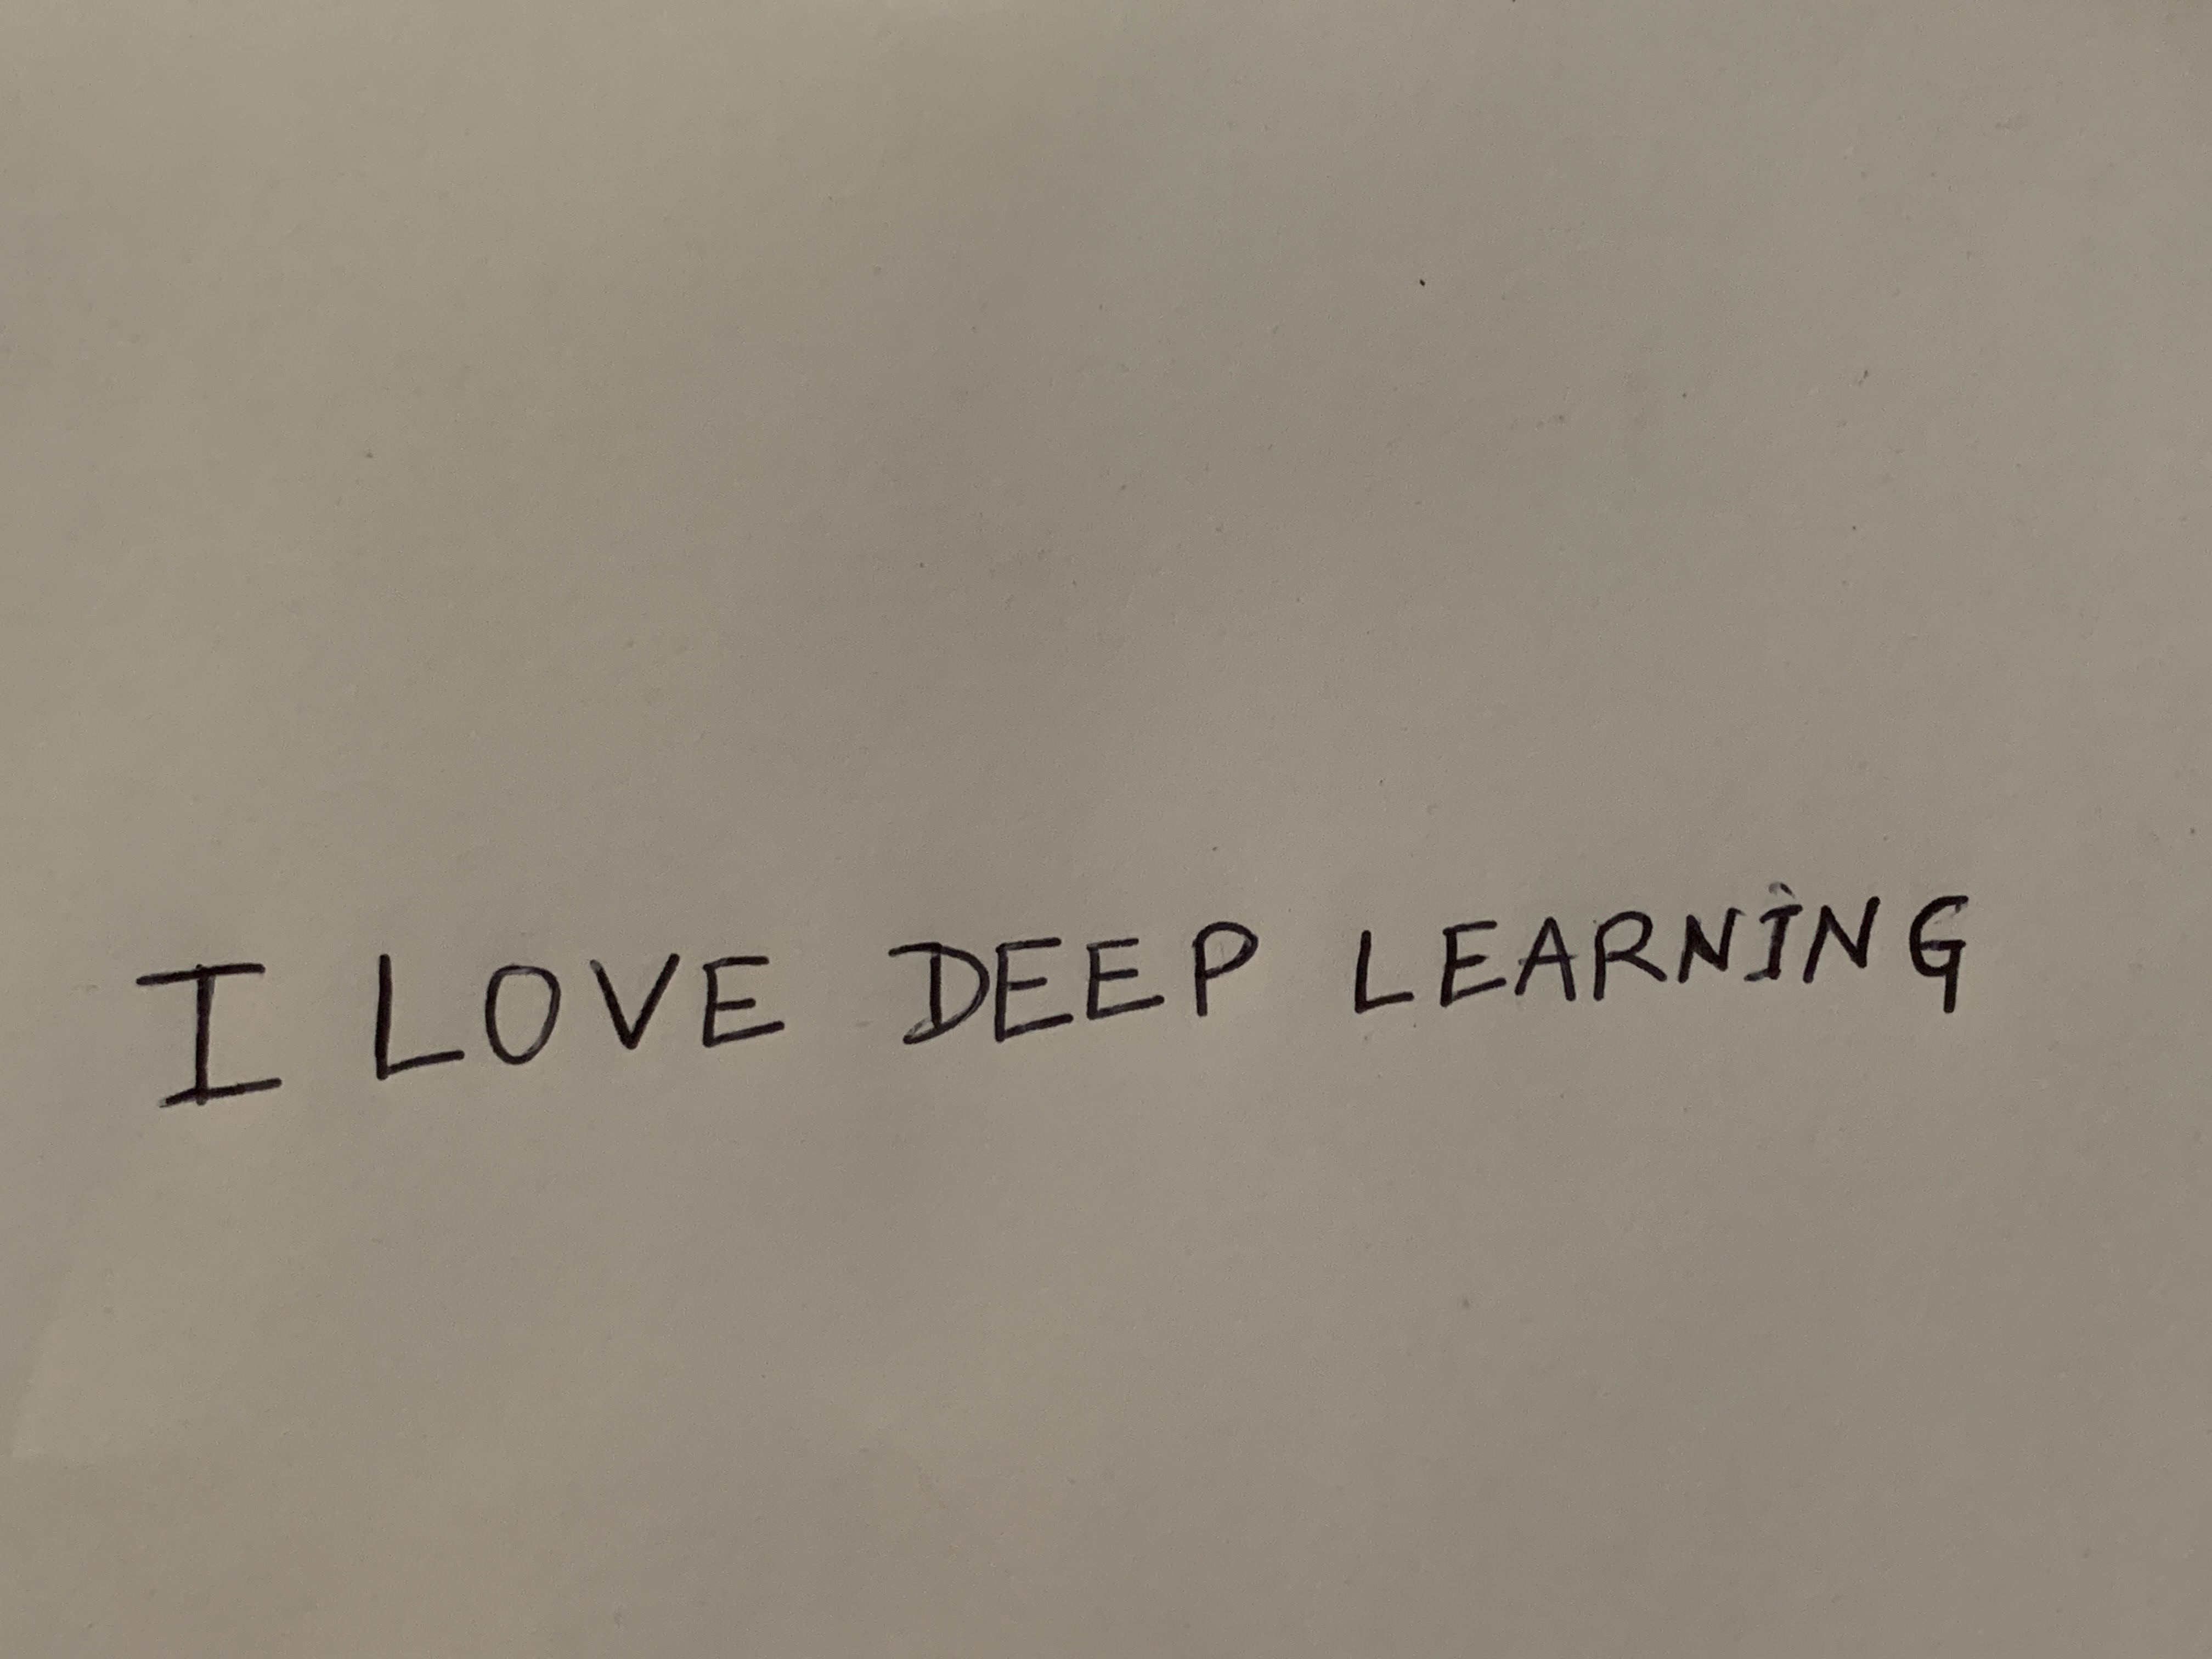 I LOVE DEEP LEARNING